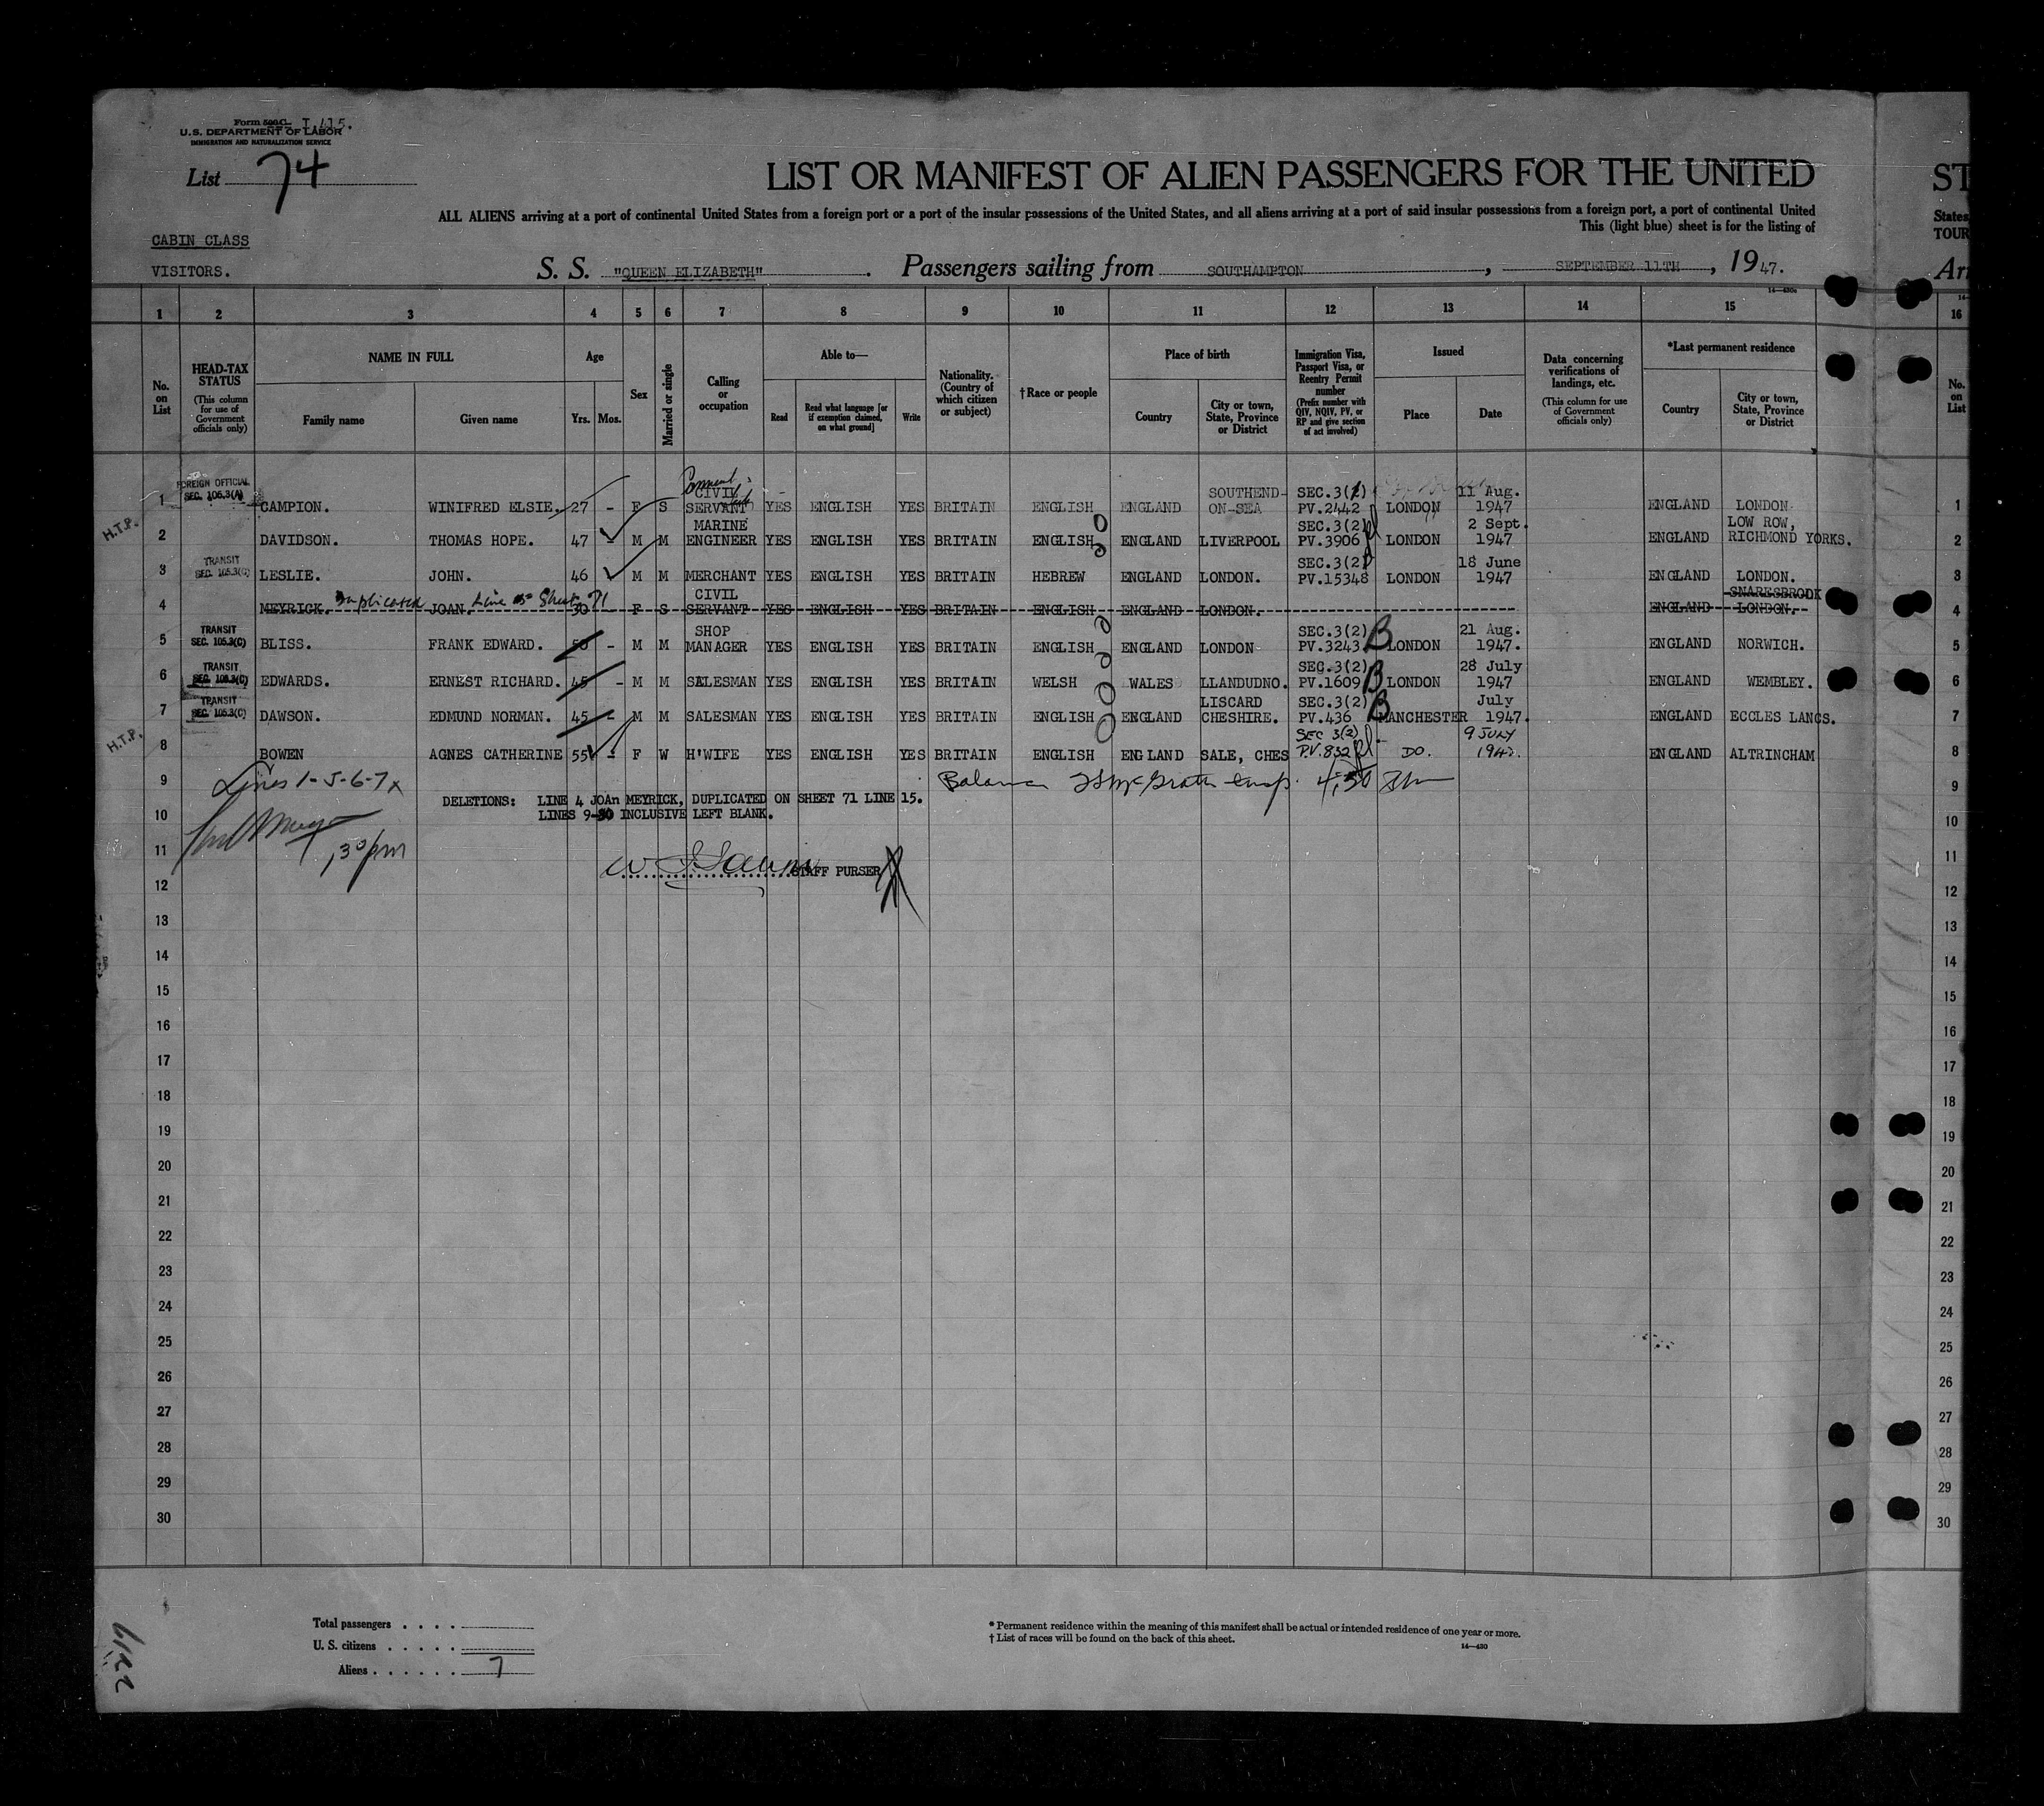 Form 500 C I 415.
U.S. DEPARTMENT OF LABOR
IMMIGRATION AND NATURALIZATION SERVICE
List 74
LIST OR MANIFEST OF ALIEN PASSENGERS FOR THE UNITED ST
ALL ALIENS arriving at a port of continental United States from a foreign port or a port of the insular possessions of the United States, and all aliens arriving at a port of said insular possessions from a foreign port, a port of continental United States
This (light blue) sheet is for the listing of TOUR
CABIN CLASS
VISITORS.
S. S. "QUEEN ELIZABETH" . Passengers sailing from SOUTHAMPTON , SEPTEMBER 11TH , 1947. Arr
1 2 3 4 5 6 7 8 9 10 11 12 13 14 15 16
No. on List
HEAD-TAX STATUS
(This column for use of Government officials only)
NAME IN FULL
Family name Given name
Age
Yrs. Mos.
Sex
Married or single
Calling or occupation
Able to—
Read
Read what language [or if exemption claimed, on what ground]
Write
Nationality. (Country of which citizen or subject)
†Race or people
Place of birth
Country
City or town, State, Province or District
Immigration Visa, Passport Visa, or Reentry Permit number
(Prefix number with QIV, NQIV, PV, or RP and give section of act involved)
Issued
Place Date
Data concerning verifications of landings, etc.
(This column for use of Government officials only)
*Last permanent residence
Country
City or town, State, Province or District
No. on List
FOREIGN OFFICIAL SEC. 105.3(A)
1 CAMPION. WINIFRED ELSIE. 27 - F S CIVIL SERVANT YES ENGLISH YES BRITAIN ENGLISH ENGLAND SOUTHEND-ON-SEA SEC.3(1) PV.2442 LONDON 11 Aug. 1947 ENGLAND LONDON 1
H.T.P.
2 DAVIDSON. THOMAS HOPE. 47 - M M MARINE ENGINEER YES ENGLISH YES BRITAIN ENGLISH ENGLAND LIVERPOOL SEC.3(2) PV.3906 LONDON 2 Sept. 1947 ENGLAND LOW ROW, RICHMOND YORKS. 2
TRANSIT SEC. 105.3(C)
3 LESLIE. JOHN. 46 M M MERCHANT YES ENGLISH YES BRITAIN HEBREW ENGLAND LONDON. SEC.3(2) PV.15348 LONDON 18 June 1947 ENGLAND LONDON. 3
4 MEYRICK. Duplicated JOAN. Line 15 Sheet 71 30 - F S CIVIL SERVANT YES ENGLISH YES BRITAIN ENGLISH ENGLAND LONDON. ENGLAND SNARESBROOK LONDON. 4
TRANSIT SEC. 105.3(C)
5 BLISS. FRANK EDWARD. 50 - M M SHOP MANAGER YES ENGLISH YES BRITAIN ENGLISH ENGLAND LONDON SEC.3(2) PV.3243 B LONDON 21 Aug. 1947. ENGLAND NORWICH. 5
TRANSIT SEC. 105.3(C)
6 EDWARDS. ERNEST RICHARD. 45 - M M SALESMAN YES ENGLISH YES BRITAIN WELSH WALES LLANDUDNO. SEC.3(2) PV.1609 B LONDON 28 July 1947 ENGLAND WEMBLEY. 6
TRANSIT SEC. 105.3(C)
7 DAWSON. EDMUND NORMAN. 45 - M M SALESMAN YES ENGLISH YES BRITAIN ENGLISH ENGLAND LISCARD CHESHIRE. SEC.3(2) PV.436 B MANCHESTER July 1947. ENGLAND ECCLES LANCS. 7
H.T.P.
8 BOWEN AGNES CATHERINE 55 - F W H'WIFE YES ENGLISH YES BRITAIN ENGLISH ENGLAND SALE, CHES SEC 3(2) P.V.832 DO. 9 JULY 1947. ENGLAND ALTRINCHAM 8
9 Lines 1-5-6-7x Balance McGrath Insp. 4:30 9
DELETIONS: LINE 4 JOAn MEYRICK, DUPLICATED ON SHEET 71 LINE 15.
LINES 9-30 INCLUSIVE LEFT BLANK.
10 10
11 11
STAFF PURSER
12 12
13 13
14 14
15 15
16 16
17 17
18 18
19 19
20 20
21 21
22 22
23 23
24 24
25 25
26 26
27 27
28 28
29 29
30 30
Total passengers . . . .
U. S. citizens . . . . .
Aliens . . . . . . 7
* Permanent residence within the meaning of this manifest shall be actual or intended residence of one year or more.
† List of races will be found on the back of this sheet.
14—430